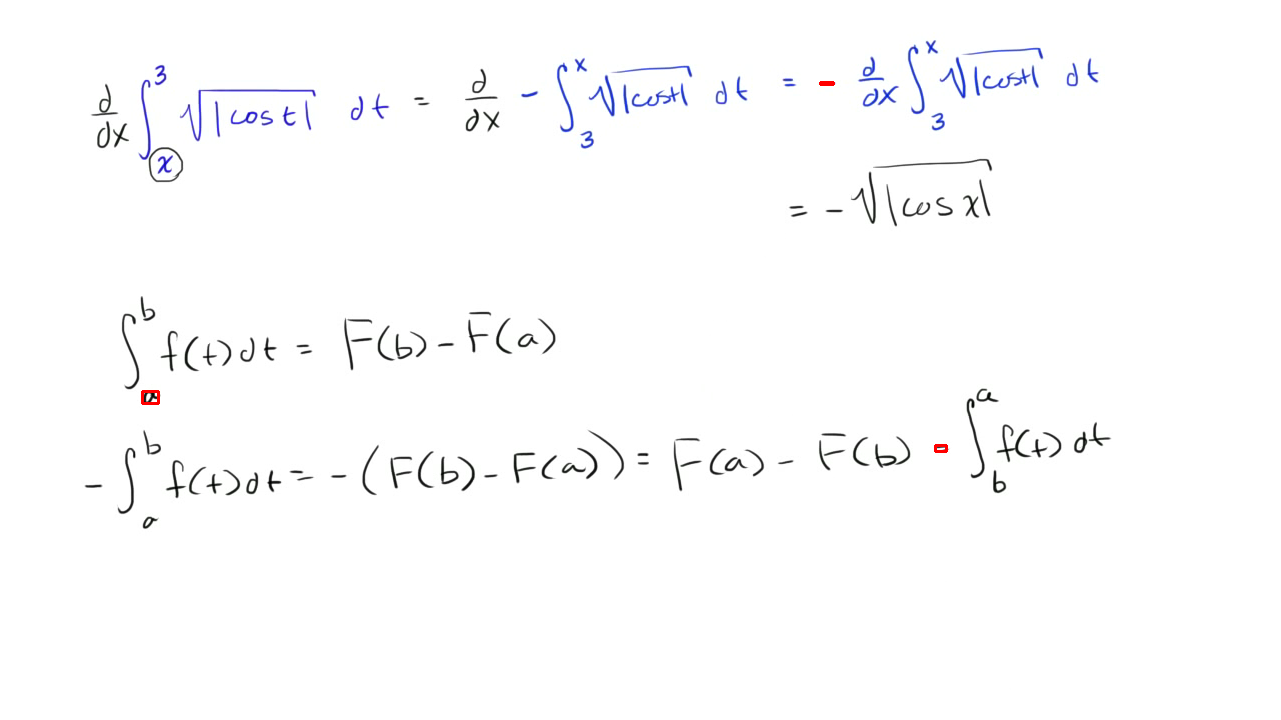 d/dx ∫_x^3 √|cos t| dt = d/dx - ∫_3^x √|cos t| dt = - d/dx ∫_3^x √|cos t| dt
= - √|cos x|
∫_a^b f(t) dt = F(b) - F(a)
- ∫_a^b f(t) dt = - (F(b) - F(a)) = F(a) - F(b) - ∫_b^a f(t) dt